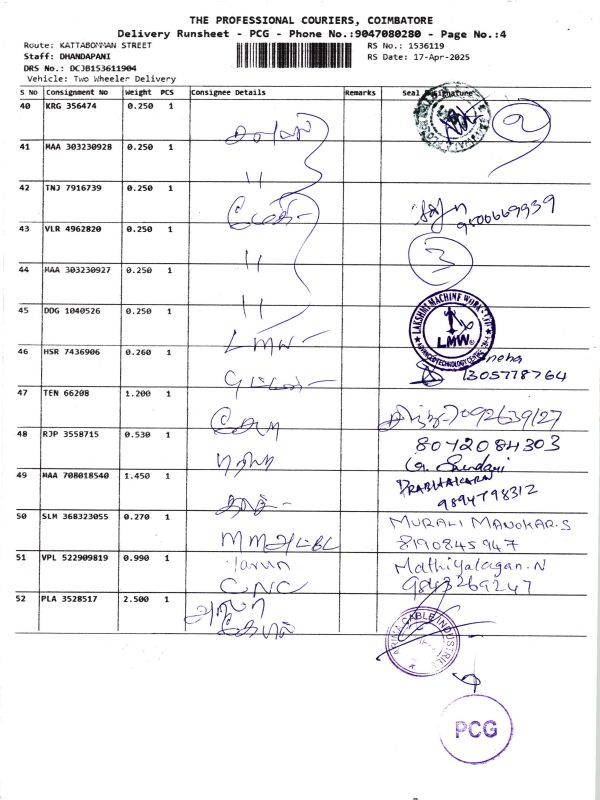 THE PROFESSIONAL COURIERS, COIMBATORE
Delivery Runsheet - PCG - Phone No.:9047080280 - Page No.:4
Route: KATTABOMMAN STREET
RS No.: 1536119
Staff: DHANDAPANI
RS Date: 17-Apr-2025
DRS No.: DCJB153611904
Vehicle: Two Wheeler Delivery
S No Consignment No Weight PCS Consignee Details Remarks Seal Signature
40 KRG 356474 0.250 1
2
41 MAA 303230928 0.250 1
"
42 TNJ 7916739 0.250 1
9500669939
43 VLR 4962820 0.250 1
"
3
44 MAA 303230927 0.250 1
"
45 DDG 1040526 0.250 1
LMW
LAKSHMI MACHINE WORKS
LMW
46 HSR 7436906 0.260 1
Sneha
1305778764
47 TEN 66208 1.200 1
48 RJP 3558715 0.530 1
8072084303
49 MAA 708018540 1.450 1
PRABHAKARAN
9894798312
50 SLM 368323055 0.270 1
MURALI MANOKAR.S
8190845947
51 VPL 522909819 0.990 1
Tarun
CNC
Mathiyalagan.N
9843269247
52 PLA 3528517 2.500 1
CABLE INDUSTRIES
PCG